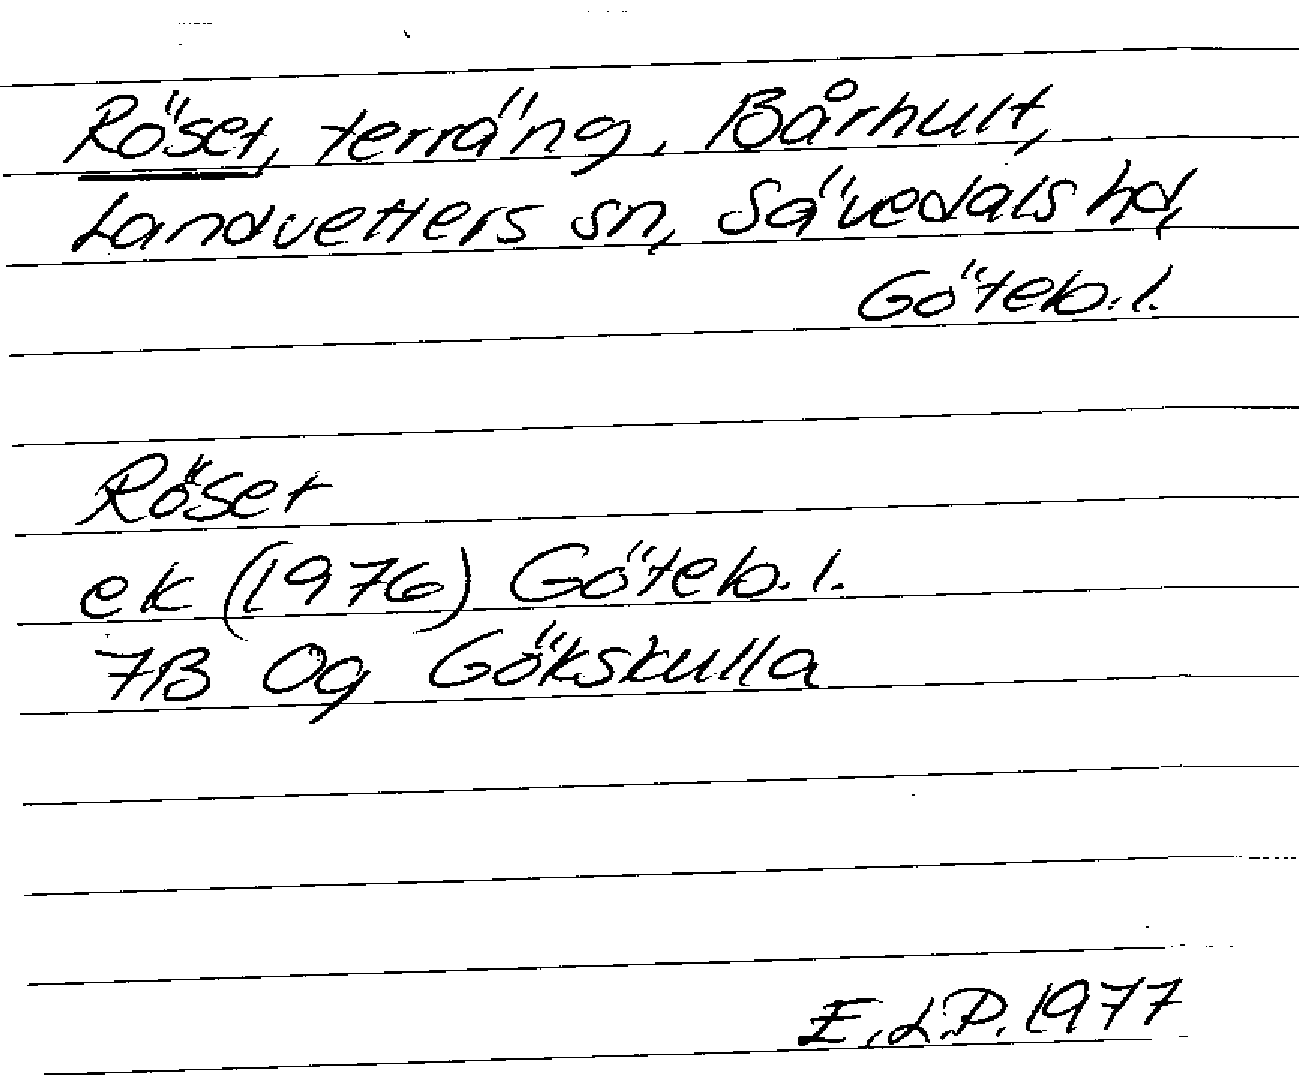 Röset, terräng, Bårhult,
Landvetters sn, Sävedals hd,
Göteb.l.
Röset
ek (1976) Göteb.l.
7B 0g Gökskulla
E.L.P. 1977